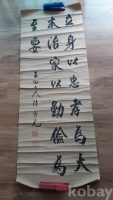 立身以忠孝為大
本治家以勤儉為
至要
kobay